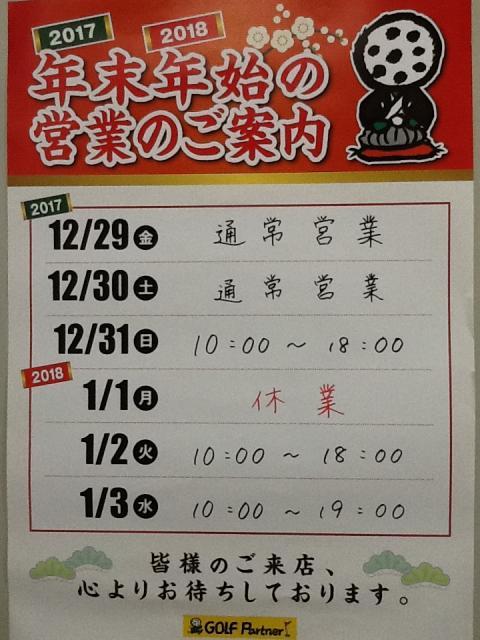 2017 2018
年末年始の
営業のご案内
2017
12/29 金 通常営業
12/30 土 通常営業
12/31 日 10:00 〜 18:00
2018
1/1 月 休業
1/2 火 10:00 〜 18:00
1/3 水 10:00 〜 19:00
皆様のご来店、
心よりお待ちしております。
GOLF Partner